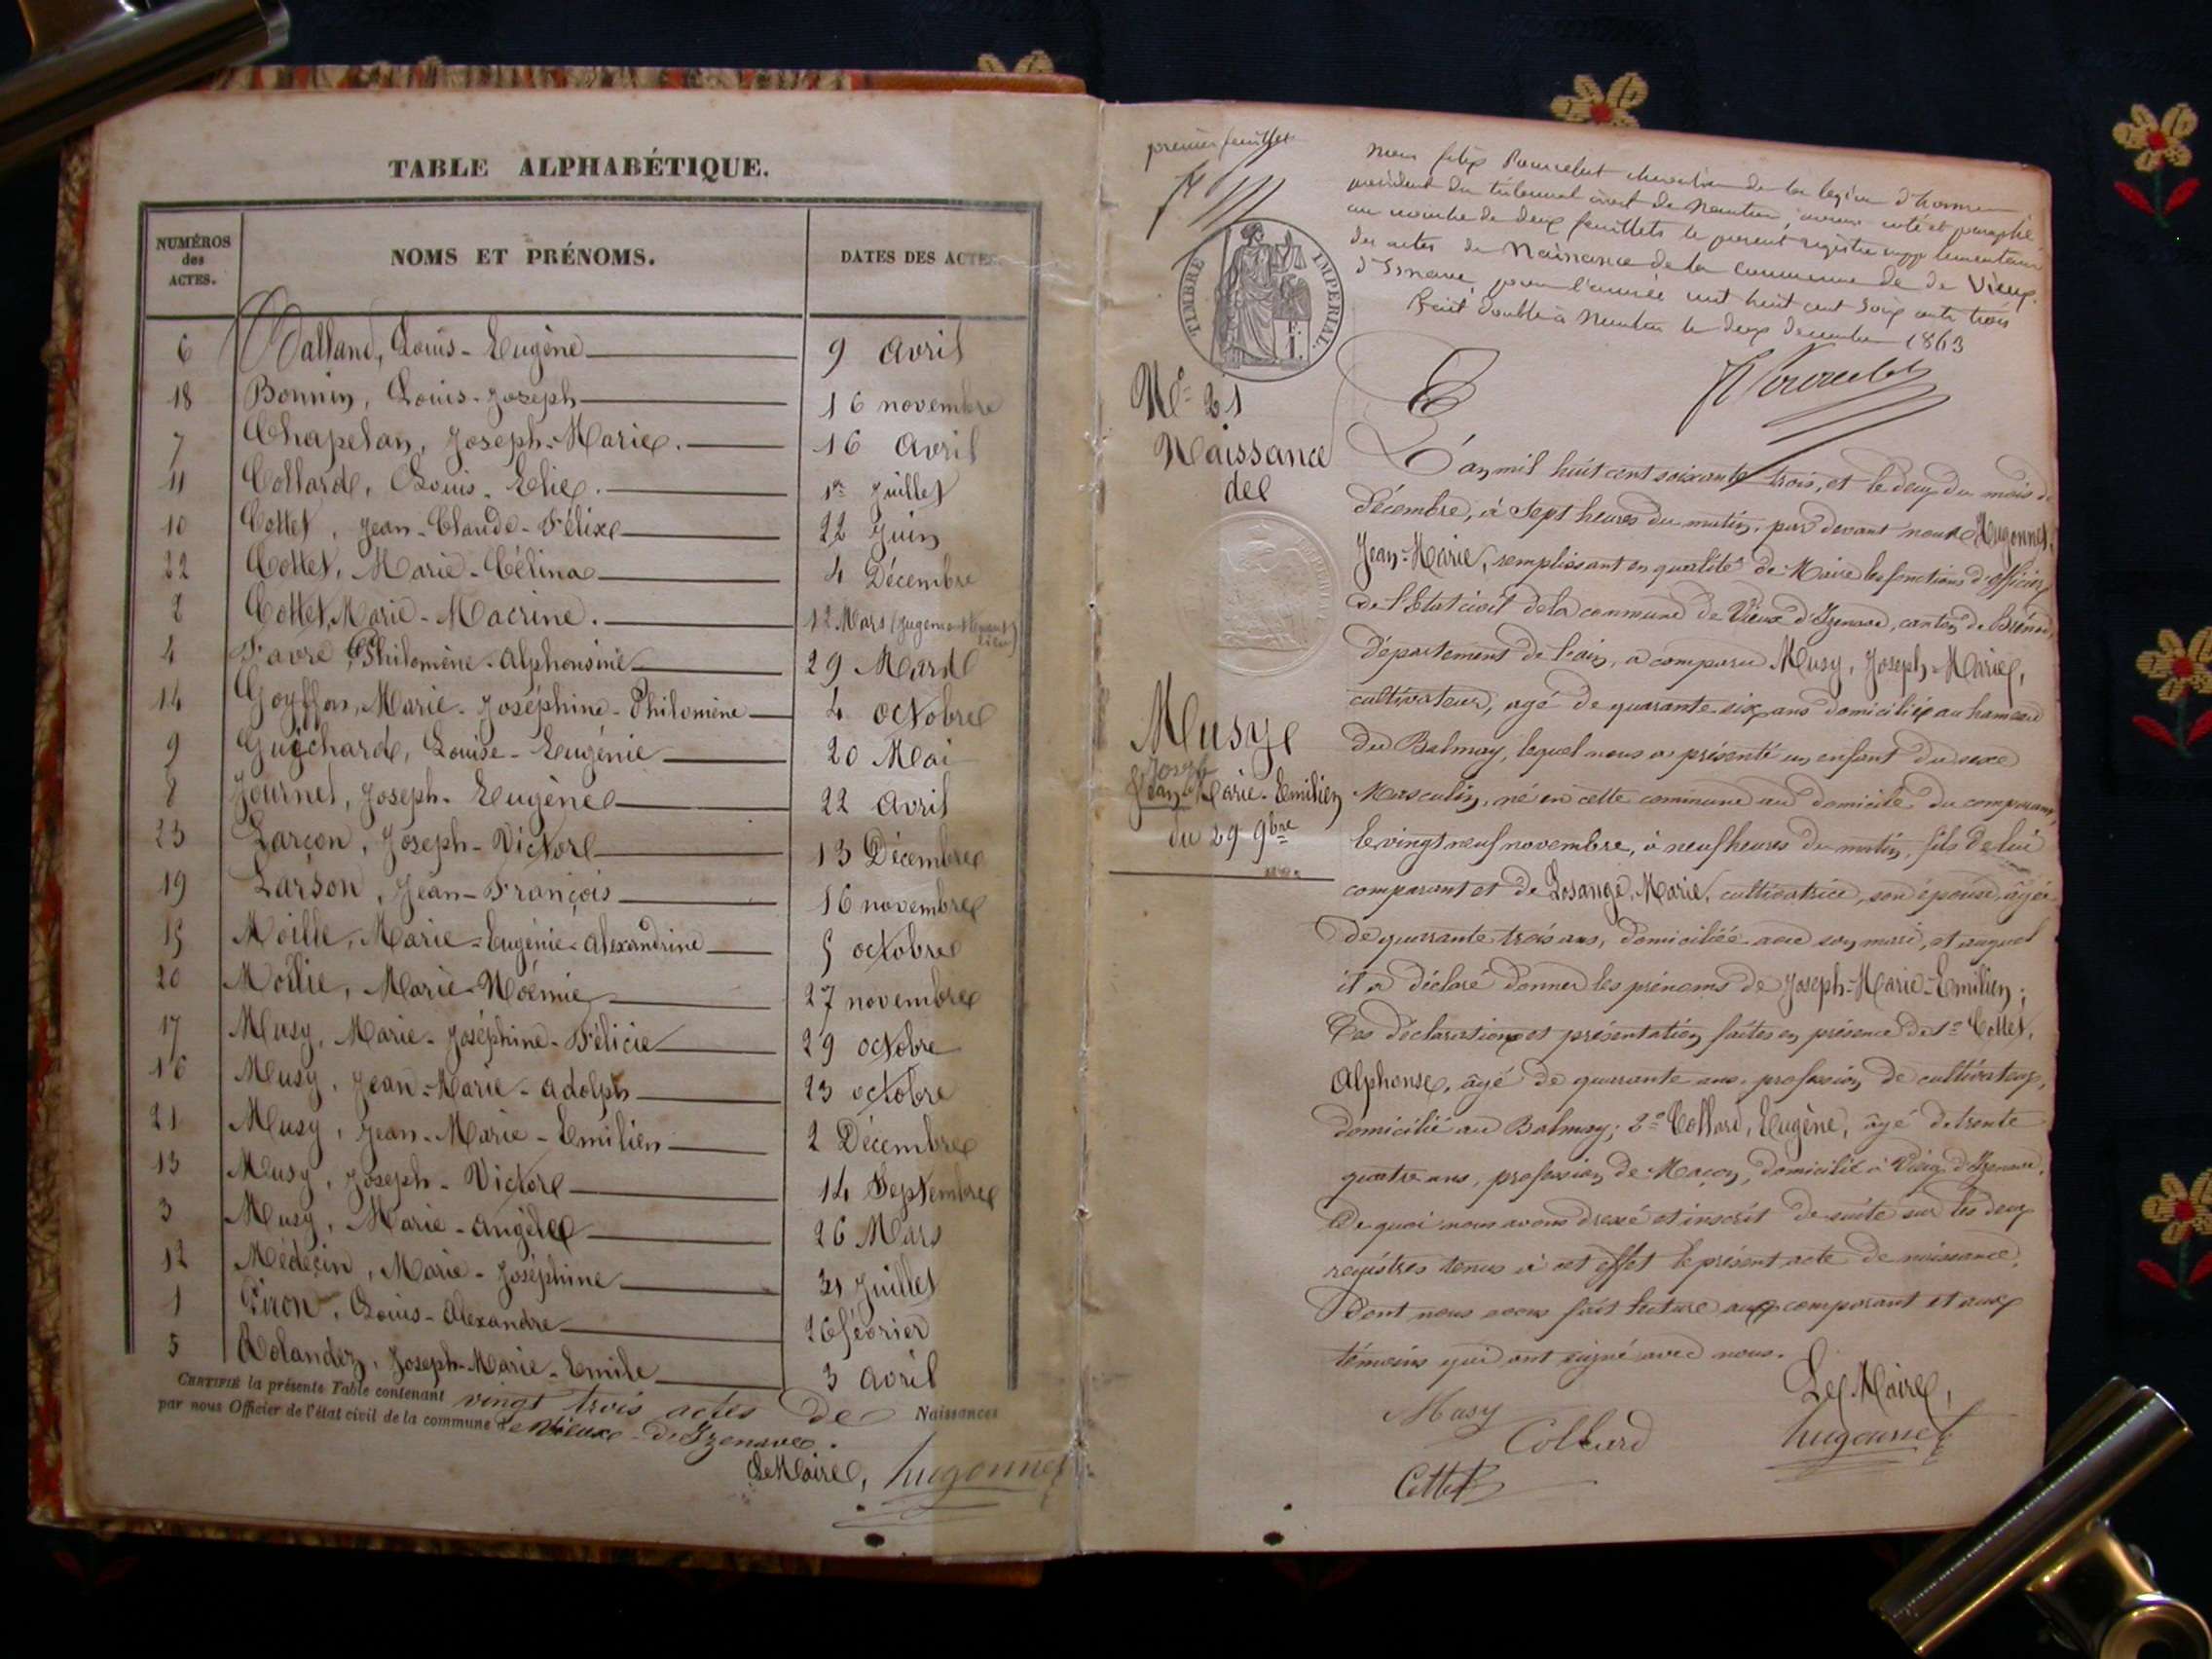 TABLE ALPHABÉTIQUE.
NUMÉROS des ACTES.
NOMS ET PRÉNOMS.
DATES DES ACTES.
6 Balland, Louis-Eugène 9 Avril
18 Bonnin, Louis-Joseph 16 novembre
7 Chapelan, Joseph-Marie. 16 Avril
11 Collard, Louis-Elie. 1er Juillet
10 Cottet, Jean-Claude-Félix 22 Juin
22 Cottet, Marie-Célina 4 Décembre
2 Cottet, Marie-Macrine. 12 Mars (jugement tenant lieu)
4 Favre Philomène-Alphonsine 29 Mars
14 Goyffon, Marie-Joséphine-Philomène 4 octobre
9 Guichard, Louise-Eugénie 20 Mai
8 Journet, Joseph-Eugène 22 Avril
23 Larçon, Joseph-Victor 13 Décembre
19 Larson, Jean-François 16 novembre
15 Moille, Marie-Eugénie-Alexandrine 5 octobre
20 Moille, Marie-Noémie 27 novembre
17 Musy, Marie-Joséphine-Félicie 29 octobre
16 Musy, Jean-Marie-Adolph 23 octobre
21 Musy, Jean-Marie-Emilien 2 Décembre
13 Musy, Joseph-Victor 14 Septembre
3 Musy, Marie-Angèle 26 Mars
12 Médecin, Marie-Joséphine 31 Juillet
1 Piron, Louis-Alexandre 26 février
5 Rolandez, Joseph-Marie-Emile 3 Avril
CERTIFIÉ la présente Table contenant vingt trois actes de Naissances
par nous Officier de l'état civil de la commune de Vieux-d'Izenave.
Le Maire, hugonnet
premier feuillet
nous félix Pourcelut chevalier de la légion d'honneur
président du tribunal civil de Nantua, avons coté et paraphé
au nombre de deux feuillets le présent registre supplémentaire
des actes de Naissance de la commune de de Vieux
d'Isenave, pour l'année mil huit cent soixante trois
Fait double à Nantua le deux décembre 1863
TIMBRE IMPERIAL.
N° 21
Naissance
de
Musy
Joseph
Jean-Marie-Emilien
du 29 9bre
L'an mil huit cent soixante trois, et le deux du mois de
Décembre, à Sept heures du matin, par devant nous Hugonnet,
Jean-Marie, remplissant en qualité de Maire les fonctions d'officier
de l'Etat civil de la commune de Vieux d'Izenave, canton de Brénod,
département de l'ain, a comparu Musy, Joseph-Marie,
cultivateur, agé de quarante six ans domicilié au hameau
du Balmay, lequel nous a présenté un enfant du sexe
Masculin, né en cette commune au domicile du comparant,
le vingt neuf novembre, à neuf heures du matin, fils de lui
comparant et de Losange, Marie, cultivatrice, son épouse, âgée
de quarante trois ans, domiciliée avec son mari, et auquel
il a déclaré donner les prénoms de Joseph-Marie-Emilien;
Ces déclaration et présentation faites en présence de 1° Cottet,
Alphonse, âgé de quarante ans, profession de cultivateur,
domicilié au Balmay; 2° Collard, Eugène, âgé de trente
quatre ans, profession de Maçon, domicilié à Vieux d'Izenave.
De quoi nous avons dressé et inscrit de suite sur les deux
registres tenus à cet effet le présent acte de naissance,
Dont nous avons fait lecture aux comparant et aux
témoins qui ont signé avec nous.
Le Maire,
Musy
Collard
hugonnet
Cottet